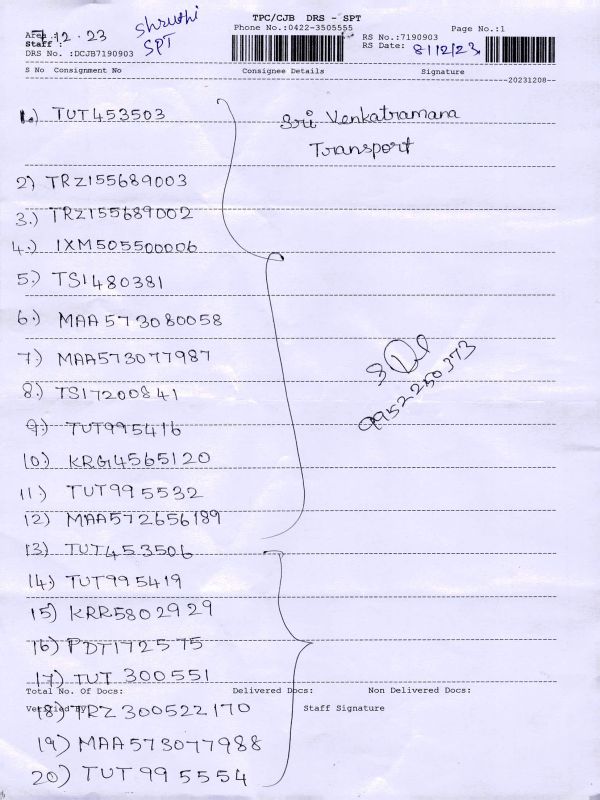 TPC/CJB DRS - SPT
Phone No.:0422-3505555
Page No.:1
12.23
Shruthi
SPT
Staff :
DRS No. :DCJB7190903
RS No.:7190903
RS Date: 8/12/23
S No Consignment No Consignee Details Signature
20231208
1.) TUT453503
Sri Venkatramana
Transport
2) TRZ155689003
3.) TRZ155689002
4.) IXM505500006
5.) TSI480381
6.) MAA573080058
7.) MAA573077987
8.) TSI7200841
9.) TUT995416
10.) KRG14565120
11.) TUT995532
12) MAA572656189
13.) TUT453506
14.) TUT995419
15) KRR5802929
16) PDT172575
17.) TUT 300551
9952250373
Total No. Of Docs: Delivered Docs: Non Delivered Docs:
Verified By
Staff Signature
18) TRZ300522170
19.) MAA573077988
20) TUT995554